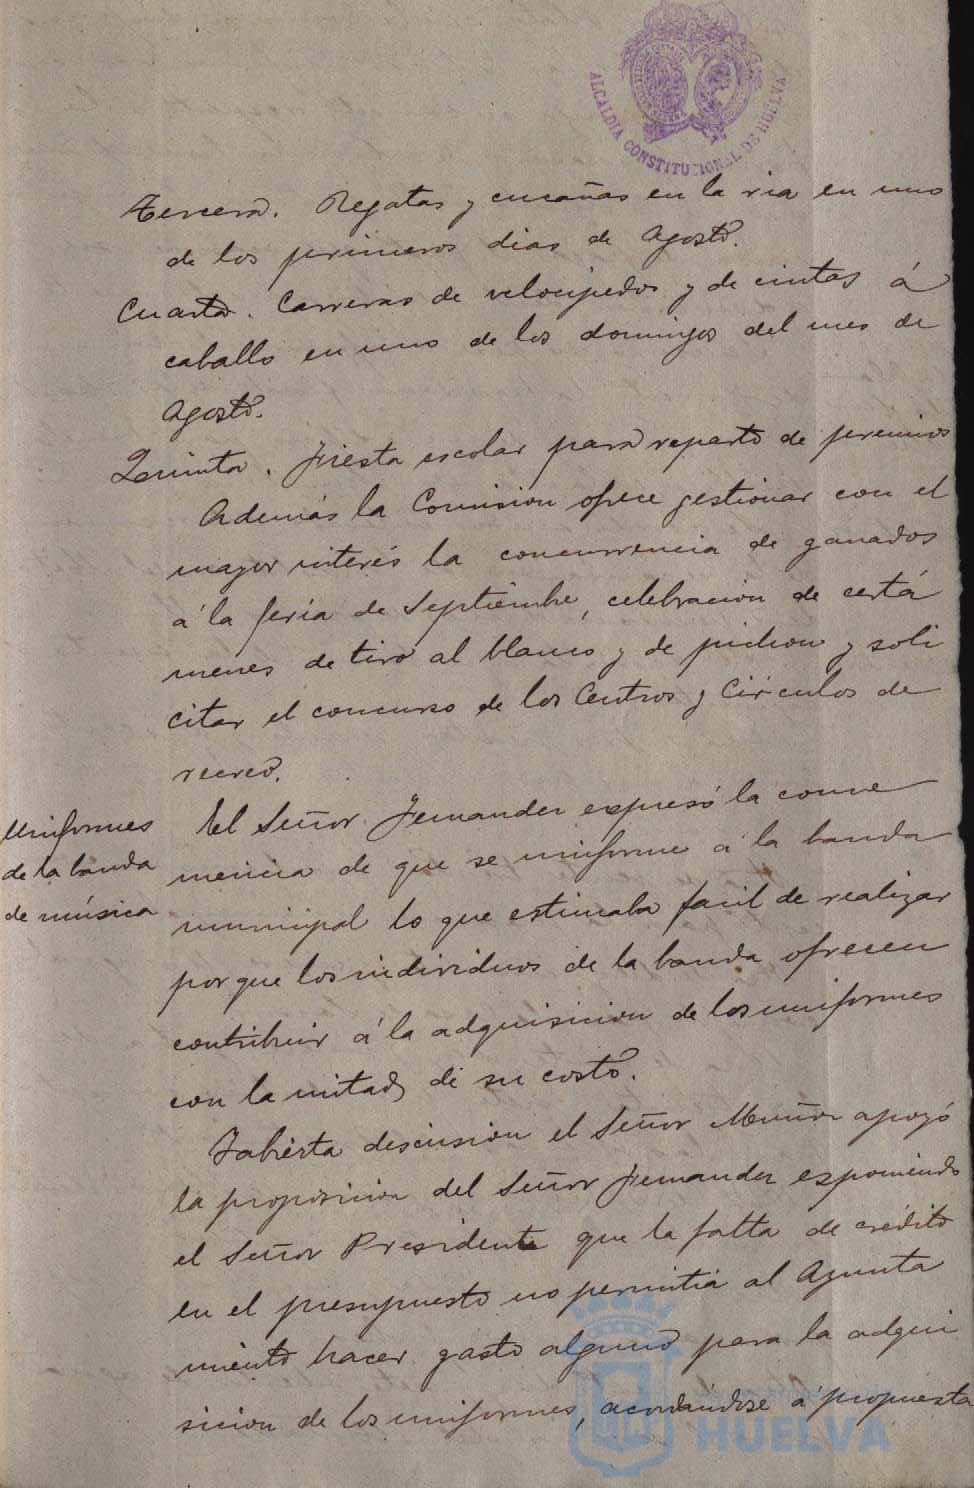 ALCALDIA CONSTITUCIONAL DE HUELVA
Tercera. Regatas y cucañas en la ria en uno
de los primeros dias de Agosto.
Cuarta. Carreras de velocipedos y de cintas á
caballo en uno de los domingos del mes de
Agosto.
Quinta. Fiesta escolar para reparto de premios
Además la Comision ofrece gestionar con el
mayor interés la concurrencia de ganados
á la feria de Septiembre, celebracion de certá
menes de tiro al blanco y de pichon y soli
citar el concurso de los Centros y Circulos de
recreo.
Uniformes
de la banda
de música
El Señor Fernandez expresó la conve
niencia de que se uniforme a la banda
municipal lo que estimaba facil de realizar
porque los individuos de la banda ofrecen
contribuir á la adquisicion de los uniformes
con la mitad de su costo.
Abierta discusion el Señor Muñoz apoyó
la proposicion del Señor Fernandez exponiendo
el Señor Presidente que la falta de crédito
en el presupuesto no permitia al Ayunta
miento hacer gasto alguno para la adqui
sicion de los uniformes, acordándose á propuesta
HUELVA